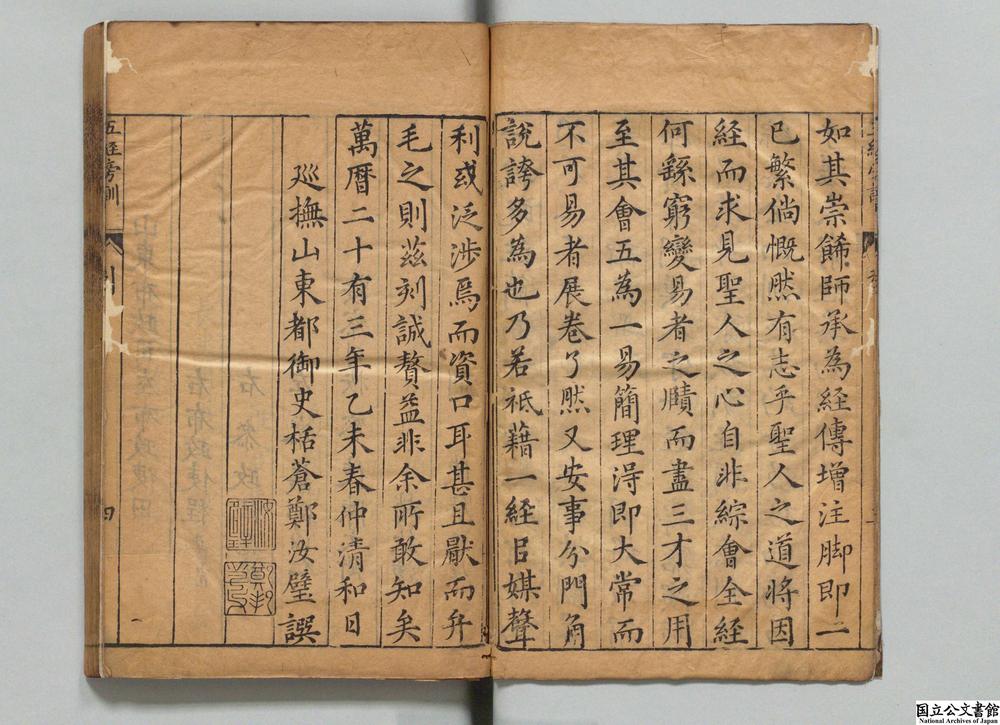 如其崇飾師承為經傳增注脚即一
已繁倘慨然有志乎聖人之道將因
經而求見聖人之心自非綜會全經
何繇窮變易者之賾而盡三才之用
至其會五為一易簡理淂即大常而
不可易者展卷了然又安事分門角
說誇多為也乃若袛藉一経㠯媒聲
利或泛涉焉而資口耳甚且厭而弁
毛之則茲刻誠贅益非余所敢知矣
萬曆二十有三年乙未春仲清和日
廵撫山東都御史栝蒼鄭汝璧譔
五經旁訓
引
四
国立公文書館
National Archives of Japan